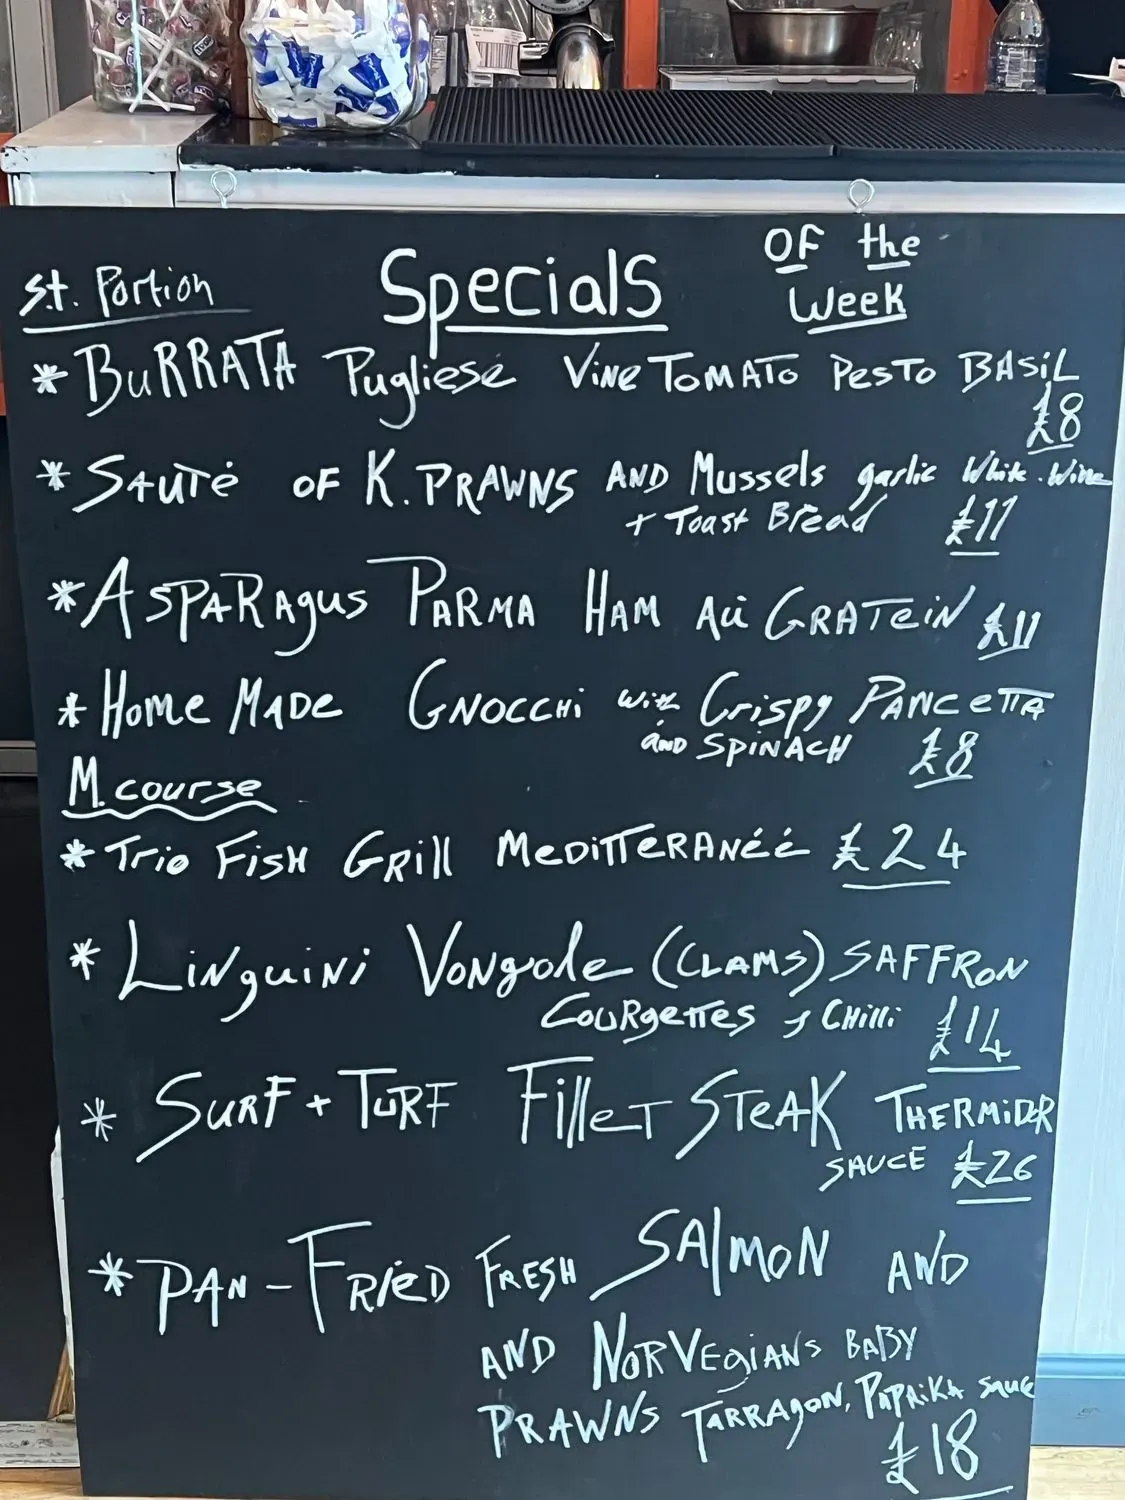 Specials OF the
Week
S.t. Portion
* BuRRATA Pugliese Vine TOMATO PESTO BASiL
£8
* SAUTÉ OF K. PRAWNS AND Mussels garlic White. Wine
+ Toast Bread £11
* ASPARAgus PARMA HAM Aü GRATEiN £11
* Home MADE GNOCCHi with Crispy PANCETTA
AND SPINACH £8
M. course
* Trio FISH GRill MEDITTERANÉÉ £24
* LiNguiNi VoNgole (CLAMS) SAFFRON
COURgETTES & CHilli £14
* SURF + TURF FilleT STEAK THERMiDOR
SAUCE £26
* PAN - FRiED FRESH SALMON AND
AND NORVEgiANS BABY
PRAWNS TARRAgON, PAPRiKA SAUCE
£18